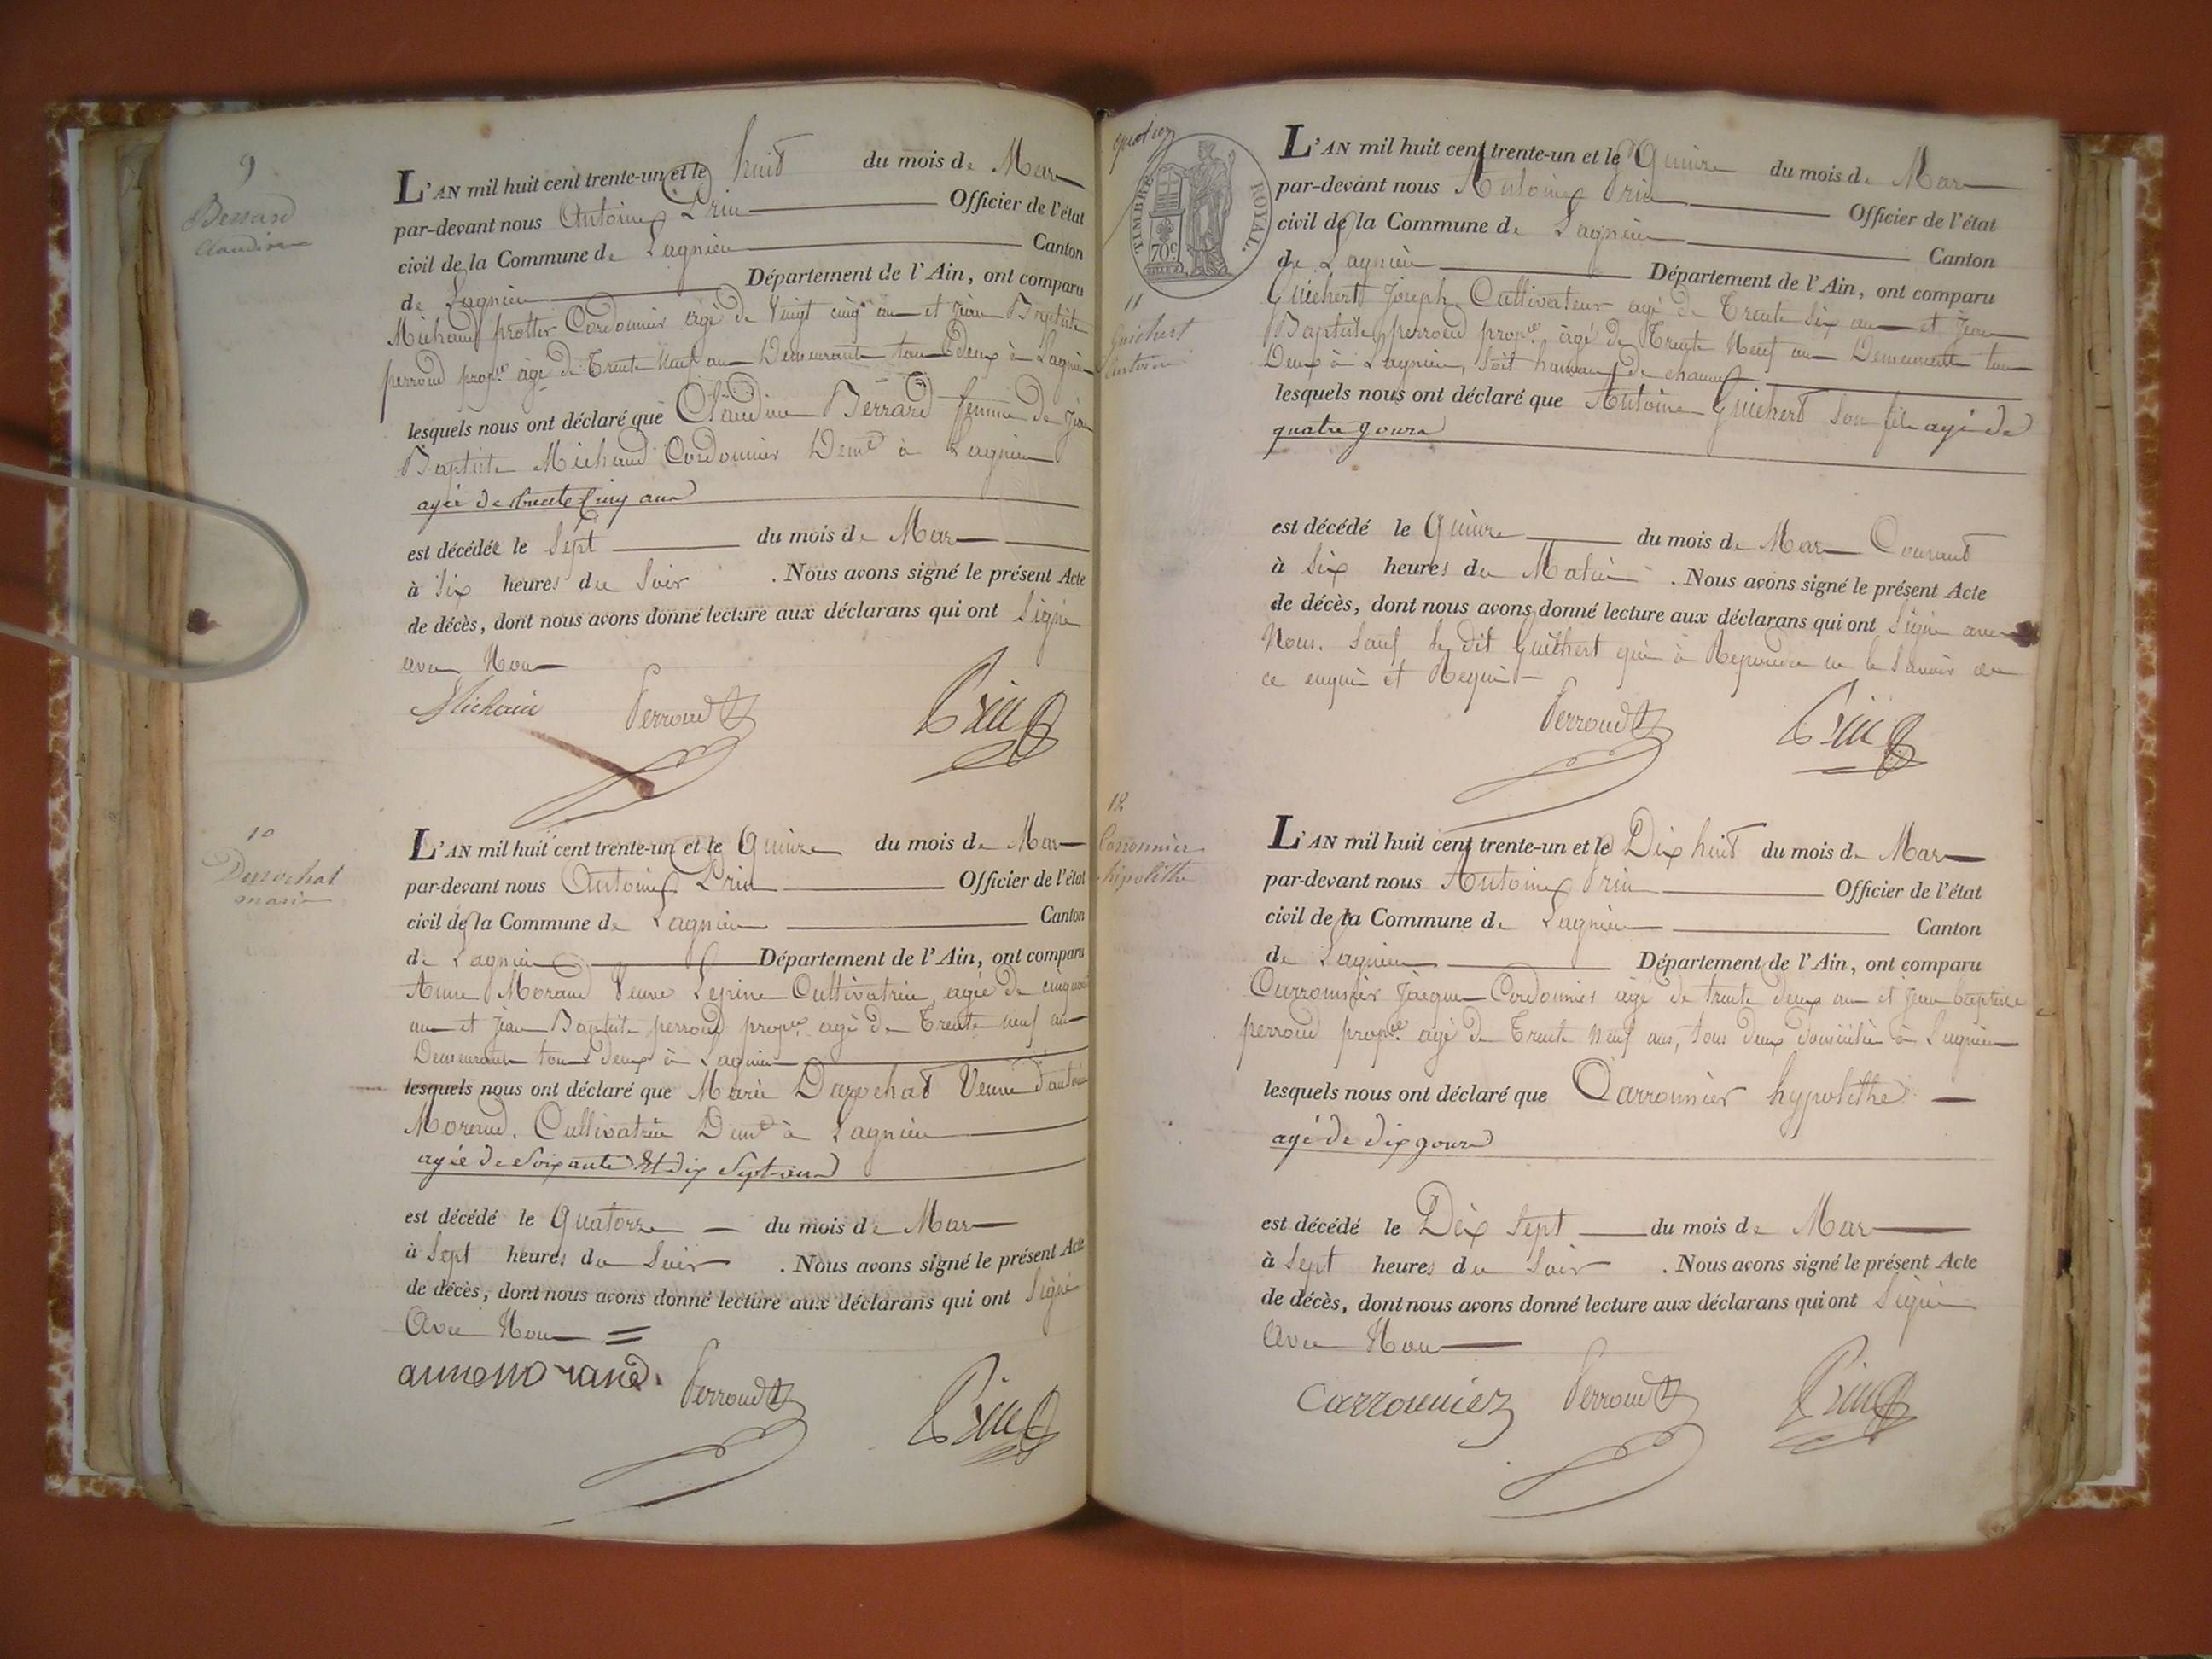 9
Bessard
Claudine
L'AN mil huit cent trente-un et le huit du mois de Mars
par-devant nous Antoine Prin Officier de l'état
civil de la Commune de Lagnieu Canton
de Lagnieu Département de l'Ain, ont comparu
Michaud Cordonnier âgé de Vingt cinq ans et Jean Baptiste
perroud prop.re âgé de Trente Neuf ans Demeurants tous deux à Lagnieu
lesquels nous ont déclaré que Claudine Berrard femme de Jean
Baptiste Michaud Cordonnier Dem.t à Lagnieu
agée de trente Cinq ans
est décédée le Sept du mois de Mars
à Six heures du Soir . Nous avons signé le présent Acte
de décès, dont nous avons donné lecture aux déclarans qui ont Signé
avec Nous
Perroud
Prin
10
Durochat
marie
L'AN mil huit cent trente-un et le Quinze du mois de Mars
par-devant nous Antoine Prin Officier de l'état
civil de la Commune de Lagnieu Canton
de Lagnieu Département de l'Ain, ont comparu
Anne Morand Veuve Lepine Cultivatrice, agée de cinquante
ans et Jean Baptiste perroud prop.re agé de Trente neuf ans
Demeurants tous deux à Lagnieu
lesquels nous ont déclaré que Marie Durochat Veuve d'antoine
Morand, Cultivatrice Dem.t à Lagnieu
agée de Soixante Et dix Sept ans
est décédé le Quatorze du mois de Mars
à Sept heures du Soir . Nous avons signé le présent Acte
de décès, dont nous avons donné lecture aux déclarans qui ont Signé
Avec Nous
anne morand.
Perroud
Prin
TIMBRE ROYAL.
70c
11
Guichert
Antoine
L'AN mil huit cent trente-un et le Quinze du mois de Mars
par-devant nous Antoine Prin Officier de l'état
civil de la Commune de Lagnieu Canton
de Lagnieu Département de l'Ain, ont comparu
Guichert Joseph Cultivateur agé de Trente Six ans et Jean
Baptiste perroud prop.re âgé de Trente Neuf ans Demeurants tous
Deux à Lagnieu, soit hameau de
lesquels nous ont déclaré que Antoine Guichert Son fils agé de
quatre jours
est décédé le Quinze du mois de Mars Courant
à Six heures du Matin . Nous avons signé le présent Acte
de décès, dont nous avons donné lecture aux déclarans qui ont Signé avec
Nous. Sauf le dit Guichert qui à Repondu ne le Savoir de
ce enquis et Requis
Perroud
Prin
12
Caronnier
hipolithe
L'AN mil huit cent trente-un et le Dix huit du mois de Mars
par-devant nous Antoine Prin Officier de l'état
civil de la Commune de Lagnieu Canton
de Lagnieu Département de l'Ain, ont comparu
Carronnier Jacques Cordonnier agé de trente deux ans et Jean baptiste
perroud prop.re agé de Trente Neuf ans, tous deux domiciliés à Lagnieu
lesquels nous ont déclaré que Carronnier hypolithe
agé de dix jours
est décédé le Dix Sept du mois de Mars
à Sept heures du Soir . Nous avons signé le présent Acte
de décès, dont nous avons donné lecture aux déclarans qui ont Signé
Avec Nous
Carronnier
Perroud
Prin